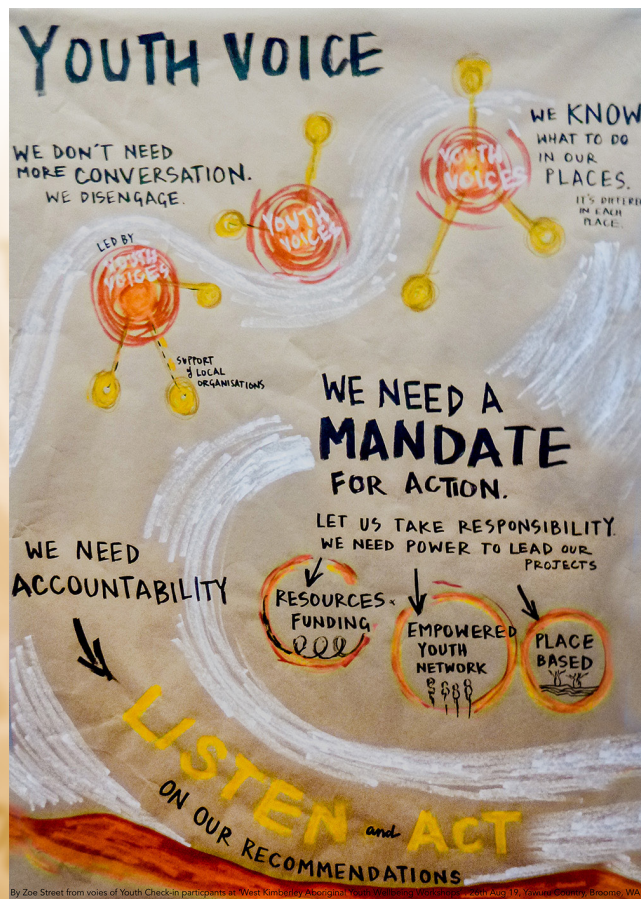 YOUTH VOICE
WE DON'T NEED
MORE CONVERSATION.
WE DISENGAGE.
WE KNOW
WHAT TO DO
IN OUR
PLACES.
IT'S DIFFERE
IN EACH
PLACE.
YOUTH
VOICES
YOUTH
VOICES
LED BY
YOUTH
VOICES
SUPPORT
of LOCAL
ORGANISATIONS
WE NEED A
MANDATE
FOR ACTION.
LET US TAKE RESPONSIBILITY.
WE NEED POWER TO LEAD OUR
PROJECTS
WE NEED
ACCOUNTABILITY
RESOURCES
FUNDING
EMPOWERED
YOUTH
NETWORK
PLACE
BASED
LISTEN and ACT
ON OUR RECOMMENDATIONS
By Zoe Street from voies of Youth Check-in particpants at 'West Kimberley Aboriginal Youth Wellbeing Workshop', 26th Aug 19, Yawuru Country, Broome, WA